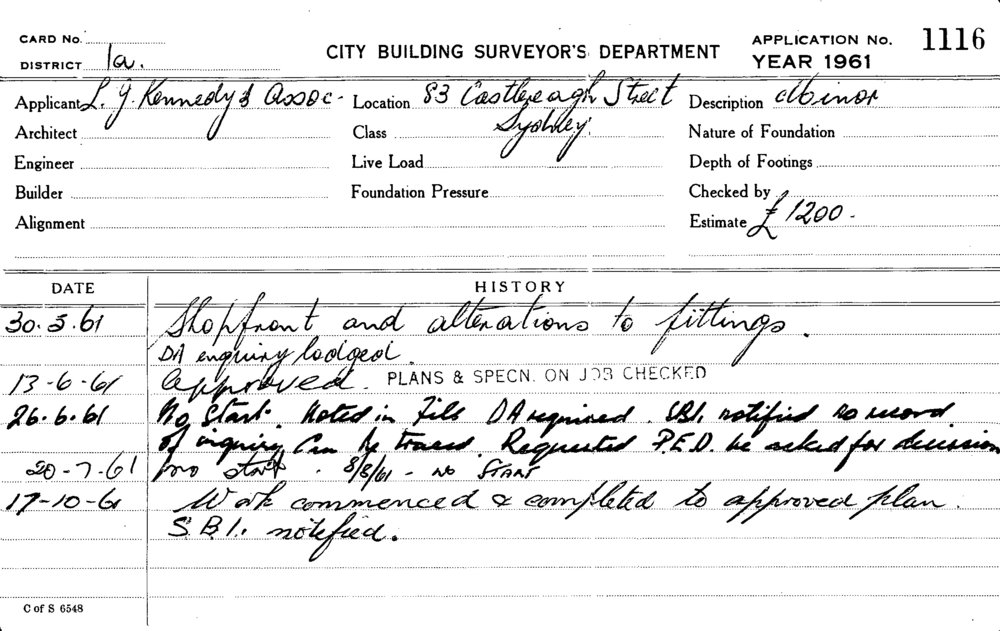 CARD No.
DISTRICT 1a.
CITY BUILDING SURVEYOR'S DEPARTMENT
APPLICATION No. 1116
YEAR 1961
Applicant L. G. Kennedy & Assoc- Location 83 Castlereagh Street Description Minor
Architect Class Sydney. Nature of Foundation
Engineer Live Load Depth of Footings
Builder Foundation Pressure Checked by
Alignment Estimate £1200-
DATE HISTORY
30.5.61 Shopfront and alterations to fittings.
DA enquiry lodged.
13-6-61 Approved. PLANS & SPECN. ON JOB CHECKED
26.6.61 No Start. Noted in File DA required. SBI. notified no record
of inquiry Can be traced. Requested P.E.D. be asked for decision
20-7-61 no start. 8/8/61 - NO START
17-10-61 Work commenced & completed to approved plan.
S.B.I. notified.
C of S 6548